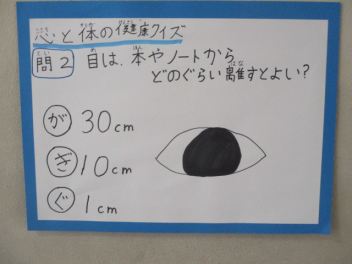 心と体の健康クイズ
問2 目は、本やノートから
どのぐらい離すとよい?
が 30cm
ぎ 10cm
ぐ 1cm